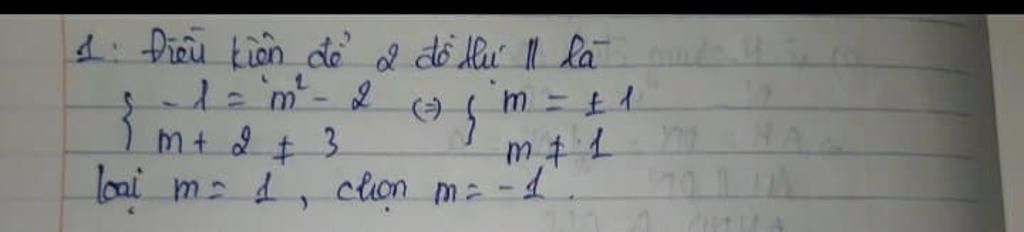 1: Điều kiện để 2 đồ thị || là
{ -1 = m² - 2 (=) { m = ± 1
{ m + 2 ≠ 3 { m ≠ 1
loại m = 1, chọn m = -1.